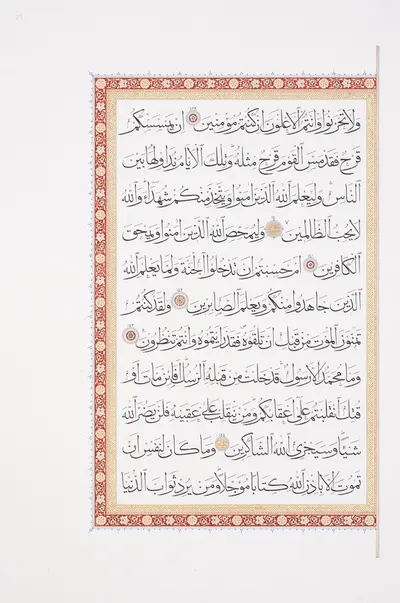 ولا تحزنوا وانتم الاعلون ان كنتم مؤمنين ان يمسسكم
قرح فقد مس القوم قرح مثله وتلك الايام نداولها بين
الناس وليعلم الله الذين امنوا ويتخذ منكم شهداء والله
لا يحب الظالمين وليمحص الله الذين امنوا ويمحق
الكافرين ام حسبتم ان تدخلوا الجنة ولما يعلم الله
الذين جاهدوا منكم ويعلم الصابرين ولقد كنتم
تمنون الموت من قبل ان تلقوه فقد رايتموه وانتم تنظرون
وما محمد الا رسول قد خلت من قبله الرسل افاين مات او
قتل انقلبتم على اعقابكم ومن ينقلب على عقبيه فلن يضر الله
شيئا وسيجزي الله الشاكرين وما كان لنفس ان
تموت الا باذن الله كتابا مؤجلا ومن يرد ثواب الدنيا